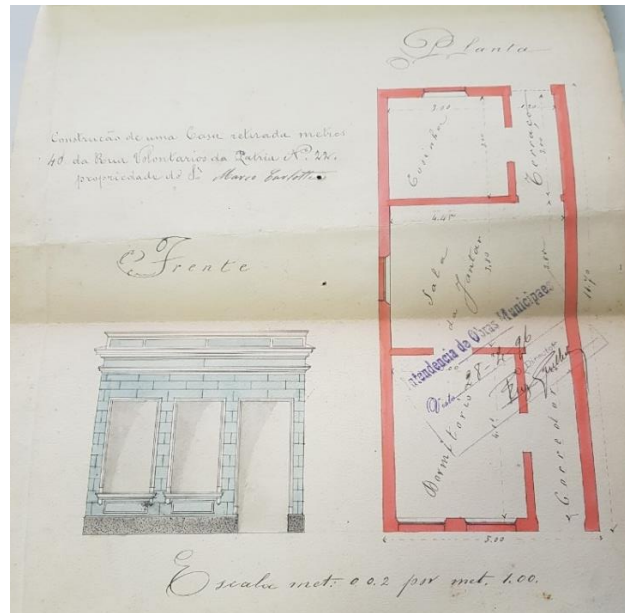 Planta
Construcão de uma Casa retirada metros
40 da Rua Volontarios da Patria Nº 22.
propriedade do Sr. Marco
Frente
Cozinha
Terraço
3.00
4.45
Sala
da Jantar
3.80
Intendencia de Obras Municipaes
Visto 8-7-96
Dormitorio
Corredor
5.00
Escala met: 0.0.2 por met. 1.00.